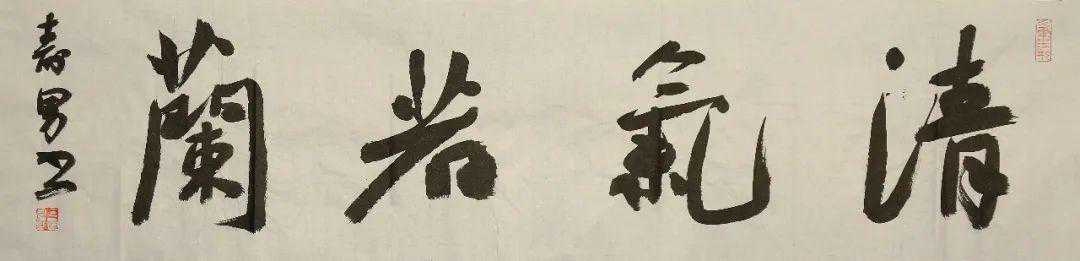 清氣若蘭
壽男书